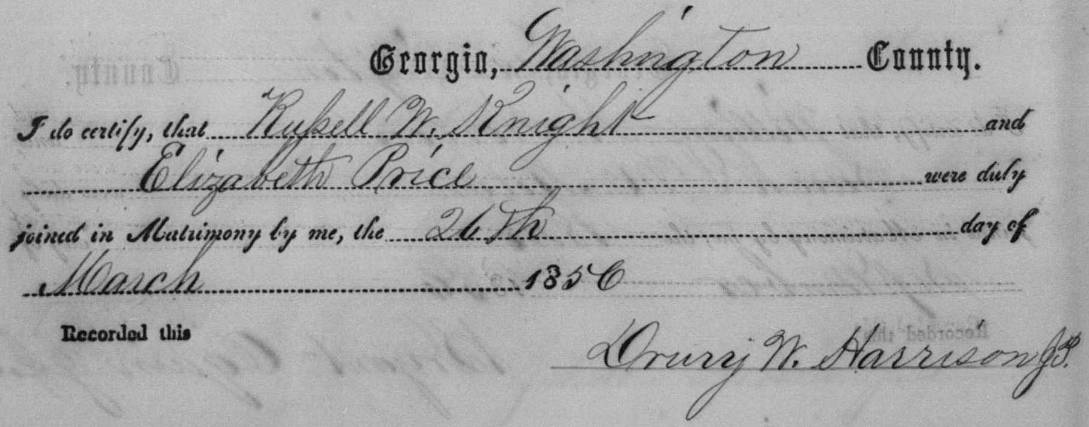 Georgia, Washington County.
I do certify, that Russell W. Knight and
Elizabeth Price were duly
joined in Matrimony by me, the 26th day of
March 1856
Recorded this
Drury W. Harrison J.P.